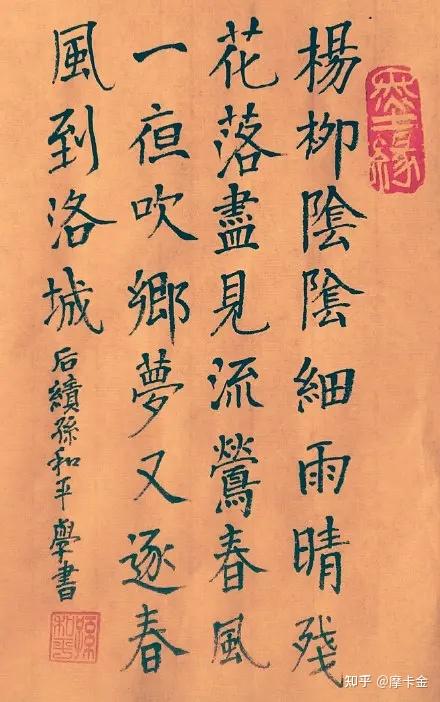 楊柳陰陰細雨晴殘
花落盡見流鶯春風
一夜吹鄉夢又逐春
風到洛城
后績孫和平學書
孫和平
知乎 @摩卡金